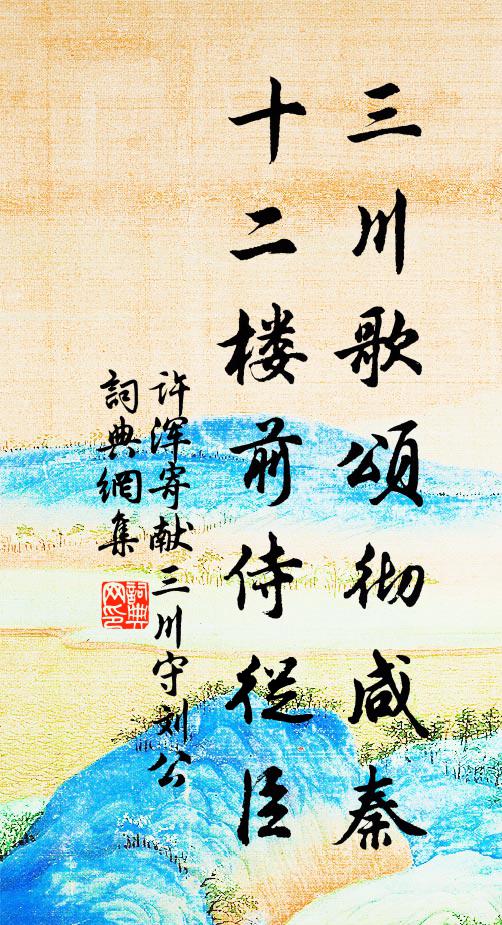 三川歌頌彻咸秦
十二楼前侍從臣
许浑寄献三川守刘公
詞典網集
詞典